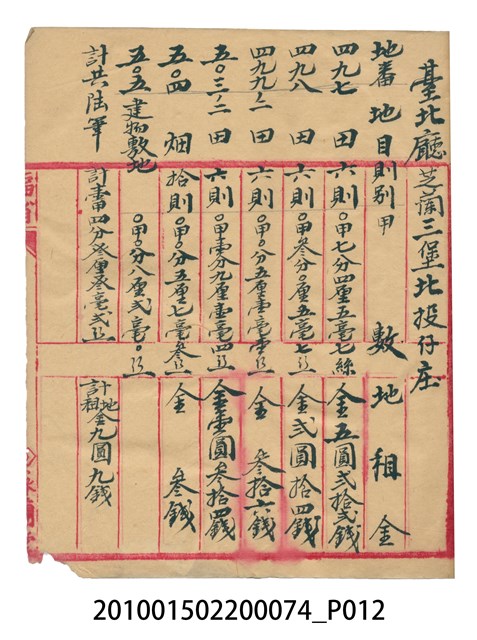 臺北廳芝蘭三堡北投仔庄
地番 地目 則別 甲 數 地租金
四九七 田 六則 〇甲七分四厘五毫七絲 金五圓貳拾貳錢
四九八 田 六則 〇甲叁分〇厘五毫七糸 金貳圓拾四錢
四九九ノ二 田 六則 〇甲〇分五厘壹毫壹糸 金叁拾六錢
五〇三ノ二 田 六則 〇甲壹分九厘壹毫四糸 金壹圓叁拾四錢
五〇四 畑 拾則 〇甲〇分五厘七毫叁糸 金叁錢
五〇五 建物敷地 〇甲〇分八厘貳毫〇糸
計共陸筆 計壹甲四分叁厘叁毫貳糸 計地租金九圓九錢
201001502200074_P012